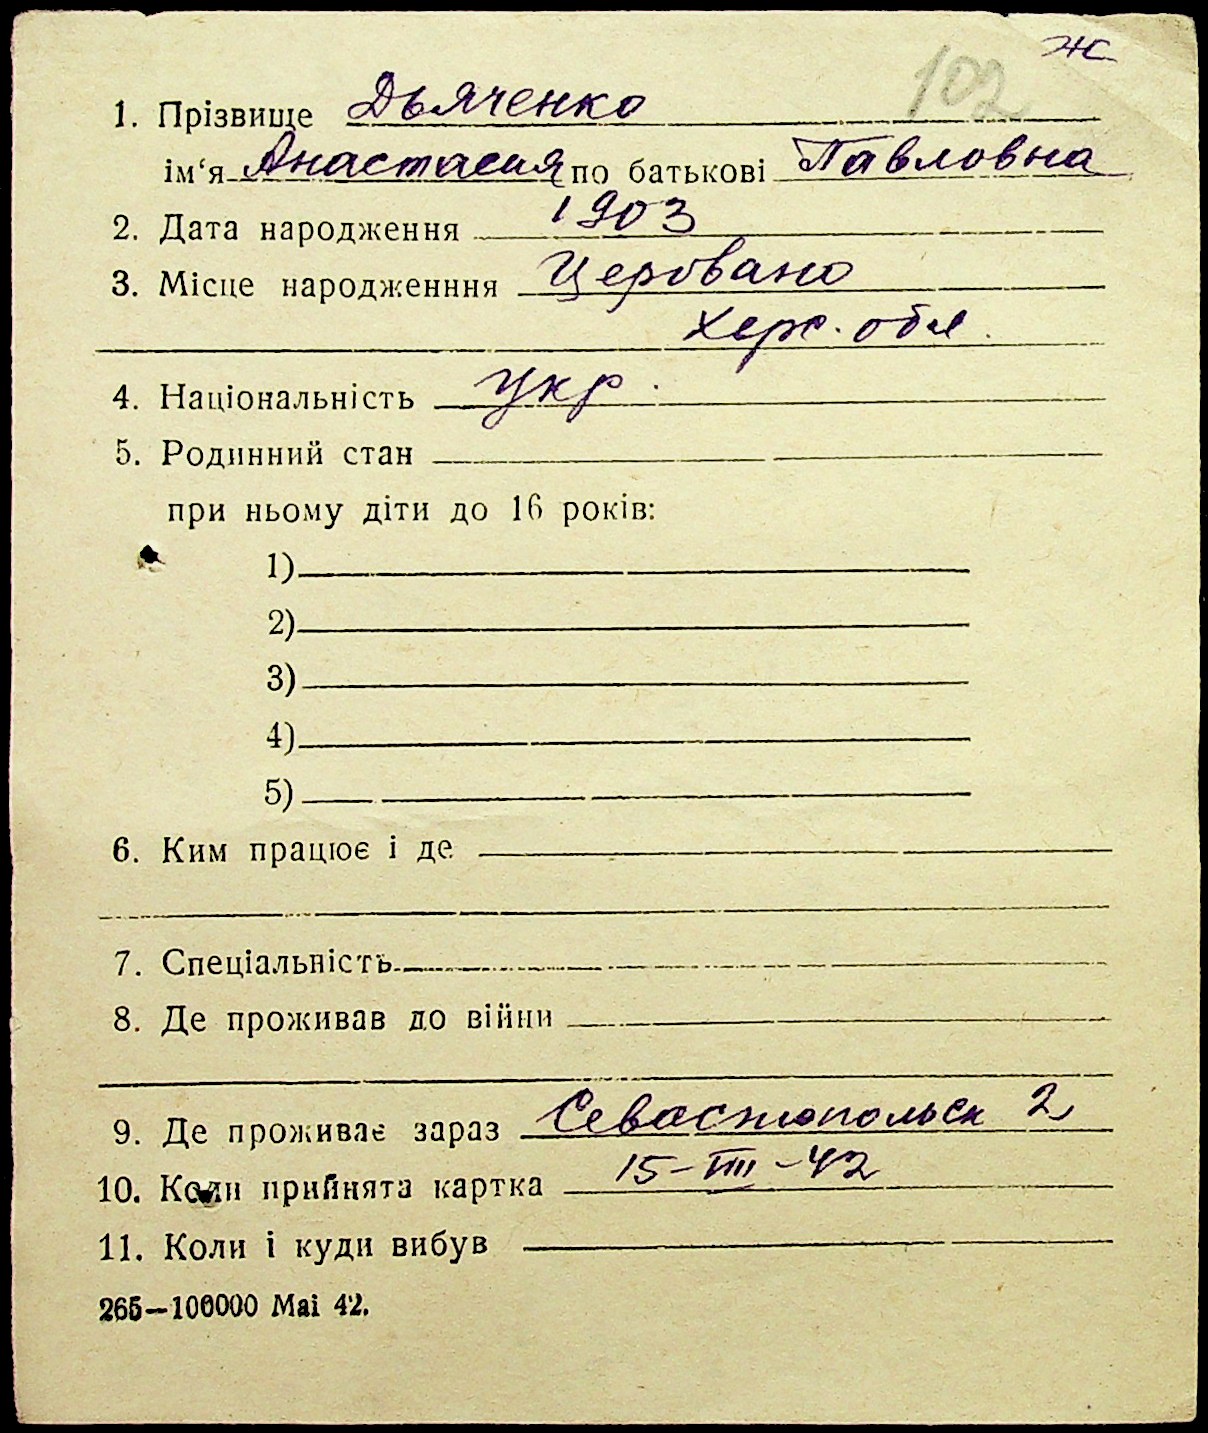 ж
102
1. Прізвище Дьяченко
ім‘я Анастасия по батькові Павловна
2. Дата народження 1903
3. Місце народженння Церовано
Херс. обл.
4. Національність Укр.
5. Родинний стан
при ньому діти до 16 років:
1)
2)
3)
4)
5)
6. Ким працює і де
7. Спеціальність
8. Де проживав до війни
9. Де проживає зараз Севастопольск 2
10. Коли прийнята картка 15-VIII-42
11. Коли і куди вибув
265—100000 Mai 42.